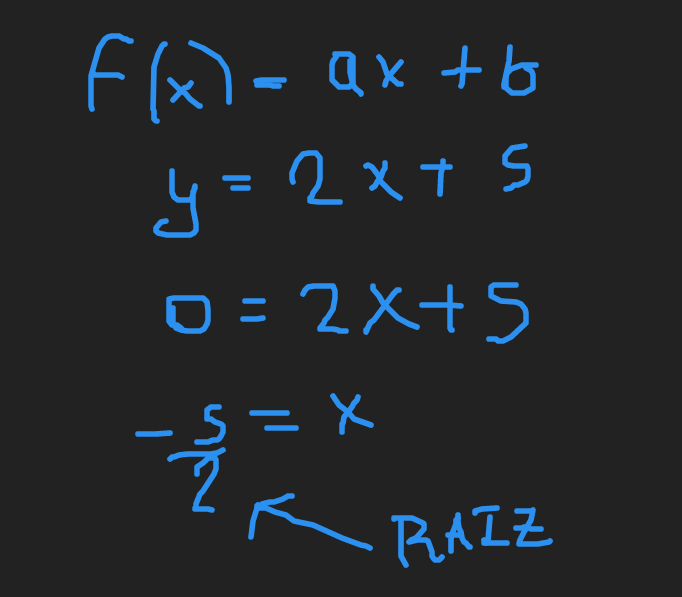 F(x) = ax + b
y = 2x + 5
0 = 2x + 5
-5/2 = x
RAIZ